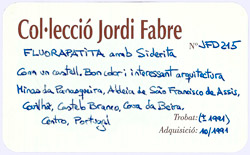 Col·lecció Jordi Fabre
FLUORAPATITA amb Siderita Nº JFD215
Com un castell. Bon color i interessant arquitectura
Minas da Panasqueira, Aldeia de São Francisco de Assis,
Covilhã, Castelo Branco, Cova da Beira,
Centro, Portugal
Trobat: (± 1991)
Adquisició: 10/1991